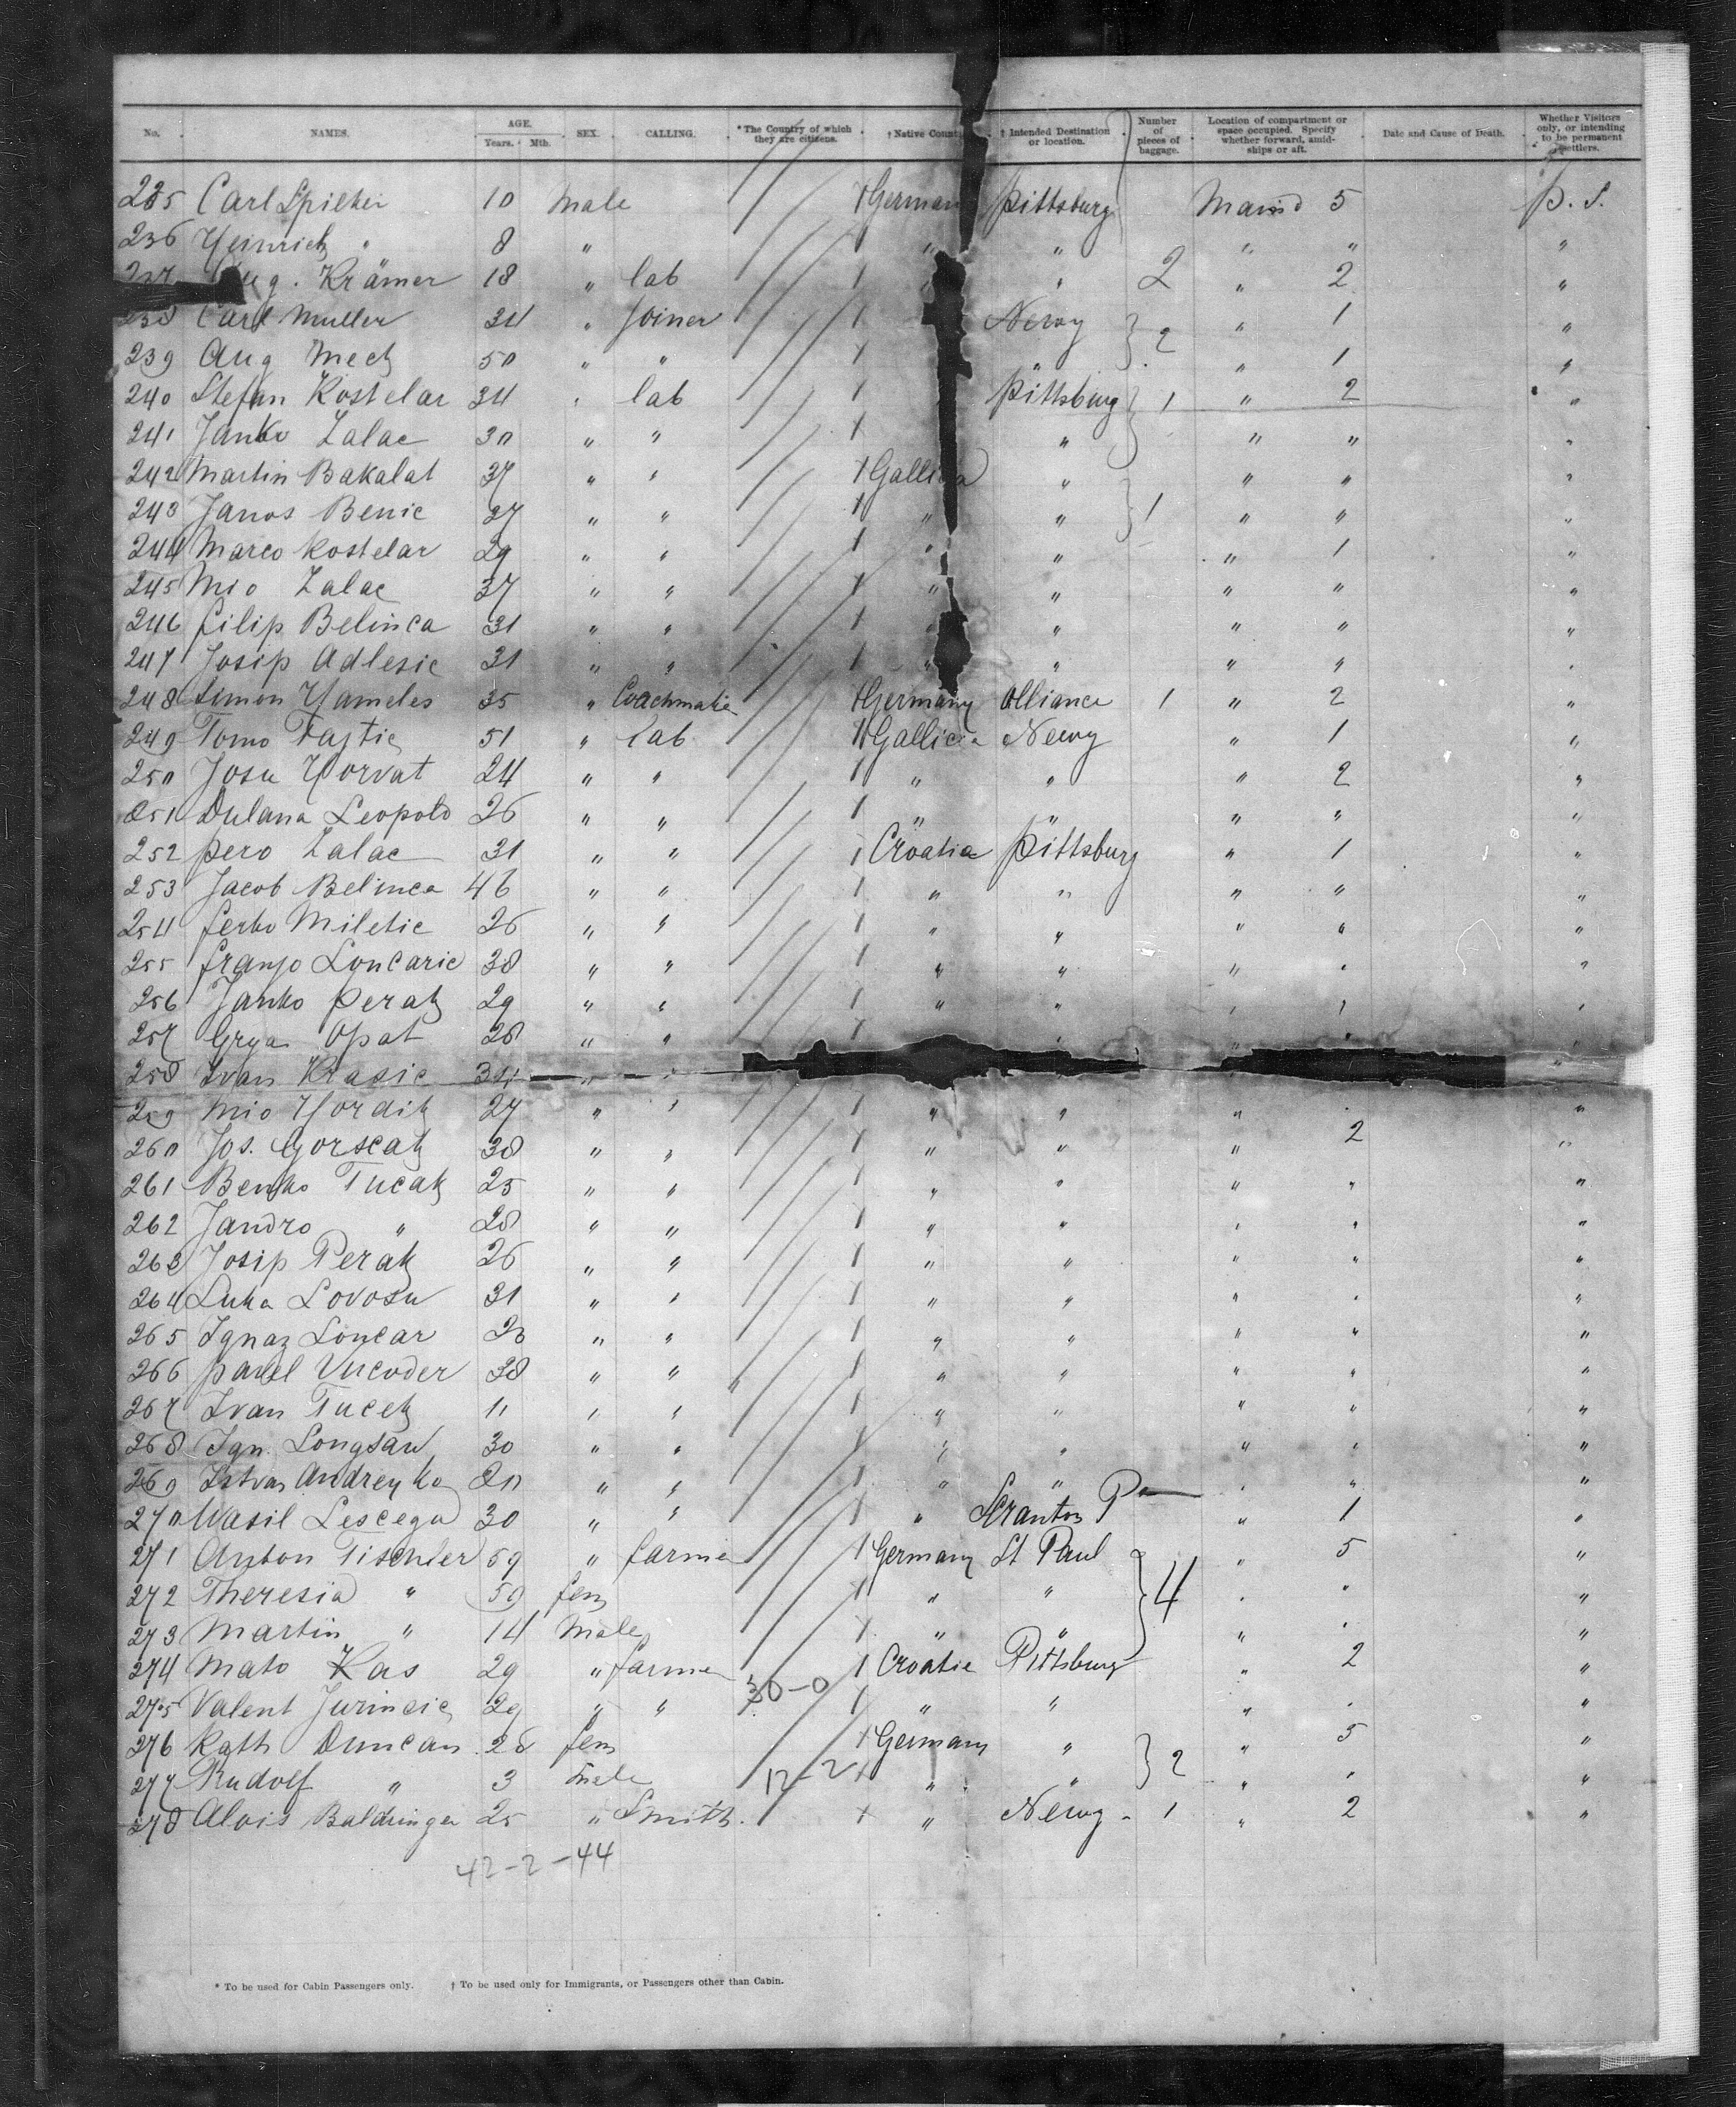 No. NAMES. AGE. Years. Mth. SEX. CALLING. *The Country of which they are citizens. †Native Count † Intended Destination or location. Number of pieces of baggage. Location of compartment or space occupied. Specify whether forward, amidships or aft. Date and Cause of Death. Whether Visitors only, or intending to be permanent settlers.
235 Carl Spilker 10 Male German Pittsburg 5 P. S.
236 Heinrich " 8 " " " " " "
Aug. Krämer 18 " lab " 2 " 2 "
238 Carl Muller 34 " Joiner Newy 2 " 1 "
239 Aug Metz 50 " " " " 1 "
240 Stefan Kostelar 34 " lab Pittsburg 1 " 2 "
241 Janko Zalac 30 " " " " " "
242 Martin Bakalat 37 " " Gallicia " " " "
243 Janos Benic 27 " " " " 1 " " "
244 Marco Kostelar 29 " " " " " 1 "
245 Mio Zalac 37 " " " " " " "
246 Filip Belinca 31 " " " " " " "
247 Josip Adlesic 31 " " " " " " "
248 Simon Hameles 35 " Germany Alliance 1 " 2 "
249 Tomo 51 " lab Gallicia Newy " 1 "
250 Josu Horvat 24 " " " " " 2 "
251 Dulana Leopold 26 " " " " " " "
252 Pero Zalac 31 " " Croatia Pittsburg " 1 "
253 Jacob Belinca 46 " " " " " " "
254 Ferko Miletic 26 " " " " " " "
255 Franjo Loncaric 38 " " " " " " "
256 Janko Peratz 29 " " " " " " "
257 Grga Opat 28 " " " " " "
258 Ivan Krasic 34 " " "
259 Mio Horditz 27 " " " " " " "
260 Jos. Gorscatz 38 " " " " " 2 "
261 Benko Tucatz 25 " " " " " " "
262 Jandro " 28 " " " " " " "
263 Josip Peratz 26 " " " " " " "
264 Luka Lovosu 31 " " " " " " "
265 Ignaz Loncar 26 " " " " " " "
266 Pavel Vucoder 38 " " " " " " "
267 Ivan Tucetz 11 " " " " " " "
268 Ign. Longsaw 30 " " " " " " "
269 Istvan Andreyko 20 " " " " " " "
270 Wasil Lescego 30 " " " Scranton Pa " 1 "
271 Anton Tischler 59 " farme Germany St Paul 4 " 5 "
272 Theresia " 50 fem " " " " "
273 Martin " 14 Male " " " " "
274 Mato Kas 29 " farme Croatia Pittsburg " 2 "
275 Valent Jurincic 29 " " 30-0 " " " " "
276 Kath Duncan 28 fem Germany " 2 " 5 "
277 Rudolf " 3 male 12-2 " " " " "
278 Alois Baldinger 25 " Smith. " Newy - 1 " 2 "
42-2-44
* To be used for Cabin Passengers only. † To be used only for Immigrants, or Passengers other than Cabin.